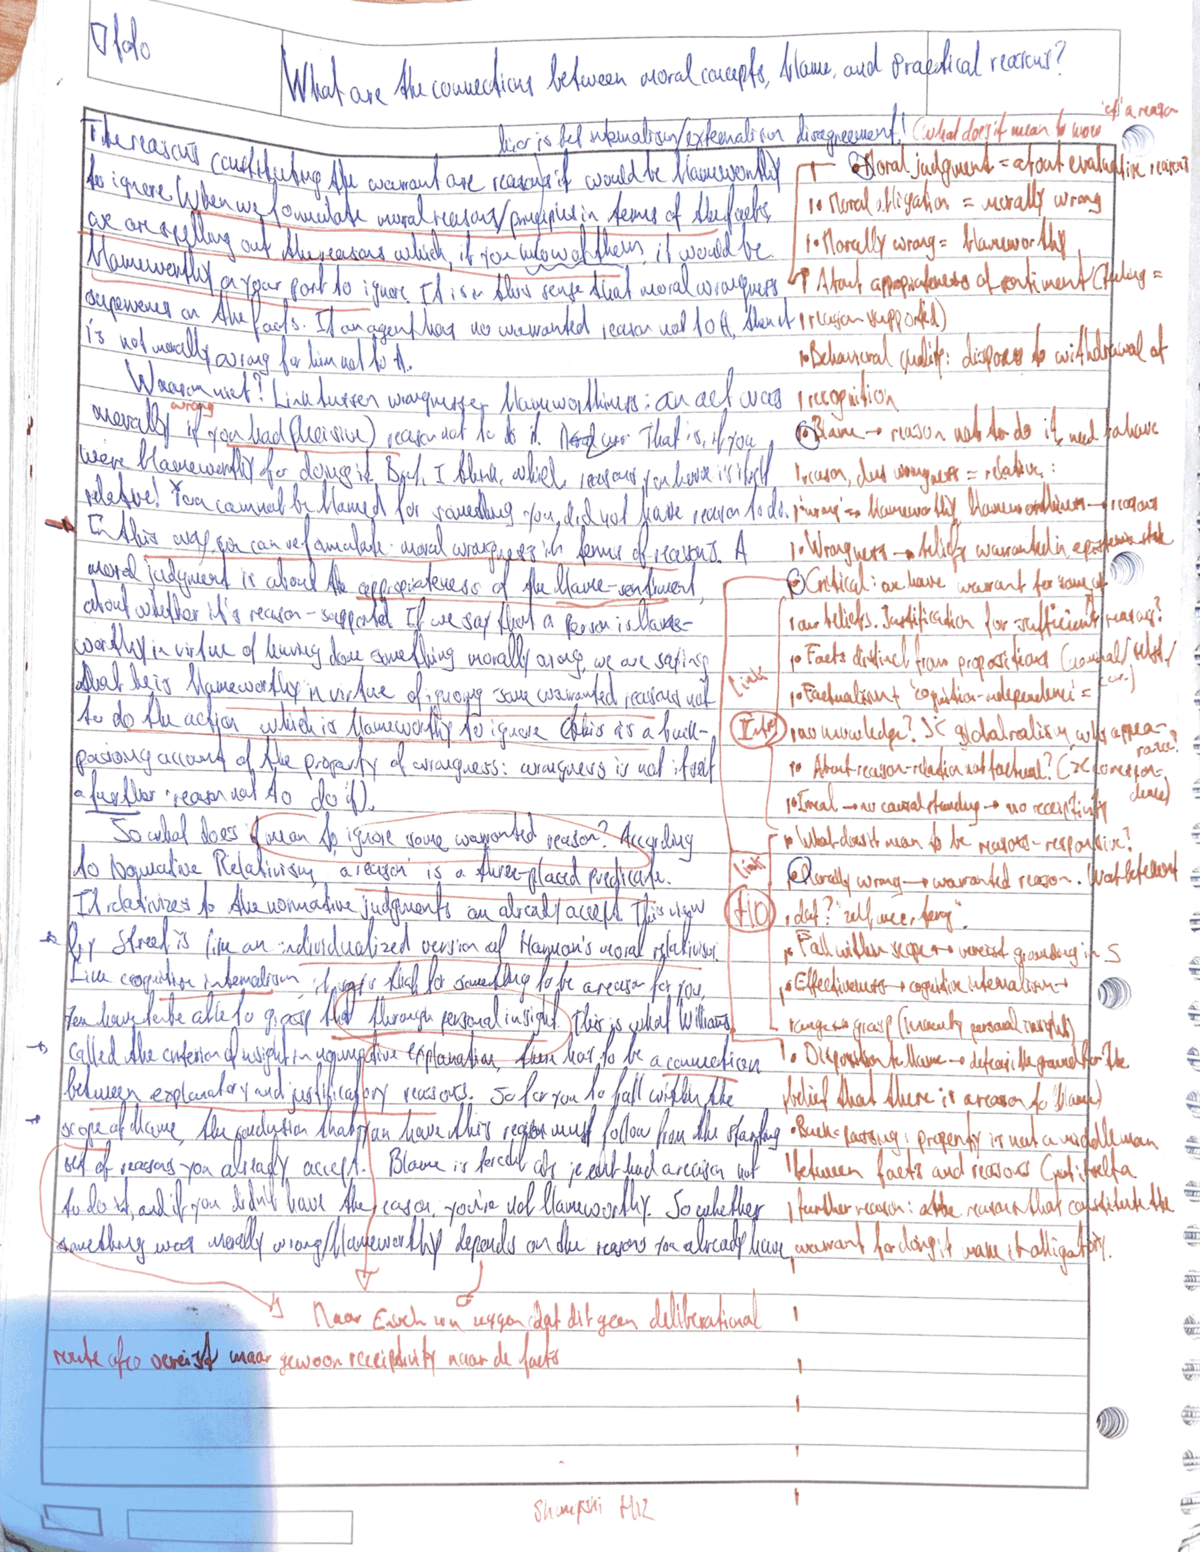 What are the connections between moral concepts, blame, and practical reasons?
'of' a reason
here is bet internalism/externalism disagreement! (what does it mean to
The reasons constituting the warrant are reasons it would be blameworthy
to ignore. (When we formulate moral reasons/principles in terms of the facts,
we are spelling out the reasons which, if you knew of them, it would be
blameworthy on your part to ignore. It is in this sense that moral wrongness
supervenes on the facts. If an agent has no warranted reason not to A, then it
is not morally wrong for him not to A.
Link between wrongness & blameworthiness: an act was
morally wrong if you had (decisive) reason not to do it. That is, if you
were blameworthy for doing it. But, I think, which reasons you have is itself
relative! You cannot be blamed for something you did not have reason to do.
In this way you can reformulate moral wrongness in terms of reasons. A
moral judgment is about the appropriateness of the blame-sentiment,
about whether it's reason-supported. If we say that a person is blame-
worthy in virtue of having done something morally wrong, we are saying
that he is blameworthy in virtue of ignoring some warranted reasons not
to do the action which is blameworthy to ignore (this is a buck-
passing account of the property of wrongness: wrongness is not itself
a further reason not to do it).
So what does it mean to ignore some warranted reason? According
to Normative Relativism, a reason is a three-placed predicate.
It relativizes to the normative judgments you already accept. This view
by Street is like an individualized version of Harman's moral relativism.
Like cognitive internalism, it says that for something to be a reason for you,
you have to be able to grasp that through personal insight. This is what Williams
called the criterion of insight in normative explanation, there has to be a connection
between explanatory and justificatory reasons. So for you to fall within the
scope of blame, the conclusion that you have this reason must follow from the starting
set of reasons you already accept. Blame is forced as if you had a reason not
to do it, and if you didn't have the reason, you're not blameworthy. So whether
something was morally wrong/blameworthy depends on the reasons you already have.
Moral judgment = about evaluative reasons
• Moral obligation = morally wrong
• Morally wrong = blameworthy
• About appropriateness of sentiment (feeling =
reason supported)
• Behavioral quality: disposes to withdrawal of
recognition
Blame → reason not to do it, need to have
reason, thus wrongness = relative:
wrong → blameworthy, blameworthiness → reasons
• Wrongness → beliefs warranted in epistemic state
Critical: we have warrant for some of
our beliefs. Justification for sufficient reasons?
• Facts distinct from propositions
• Factualism: 'cognition-independence' =
no knowledge? global realism, why appea-
rance?
• About reason-relation not factual?
• Irreal → no causal standing → no receptivity
• What does it mean to be reasons-responsive?
Morally wrong → warranted reason.
• Fall within scope → vereist grounding in S
• Effectiveness → cognitive internalism →
range → grasp (insight, personal insights)
• Disposition to blame → determine ground for the
belief that there is a reason to blame)
• Buck-passing: property is not a middleman
between facts and reasons
further reason: the reasons that constitute the
warrant for doing it make it obligatory.
link
link
Maar Esch kan zeggen dat dit geen deliberational
route vereist maar gewoon receptivity naar de facts